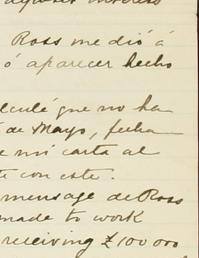 Ross me dió á
ó aparecer hecho
lculé que no ha
de Mayo, fecha
mi carta al
con este.
mensage de Ross
made to work
receiving £100000